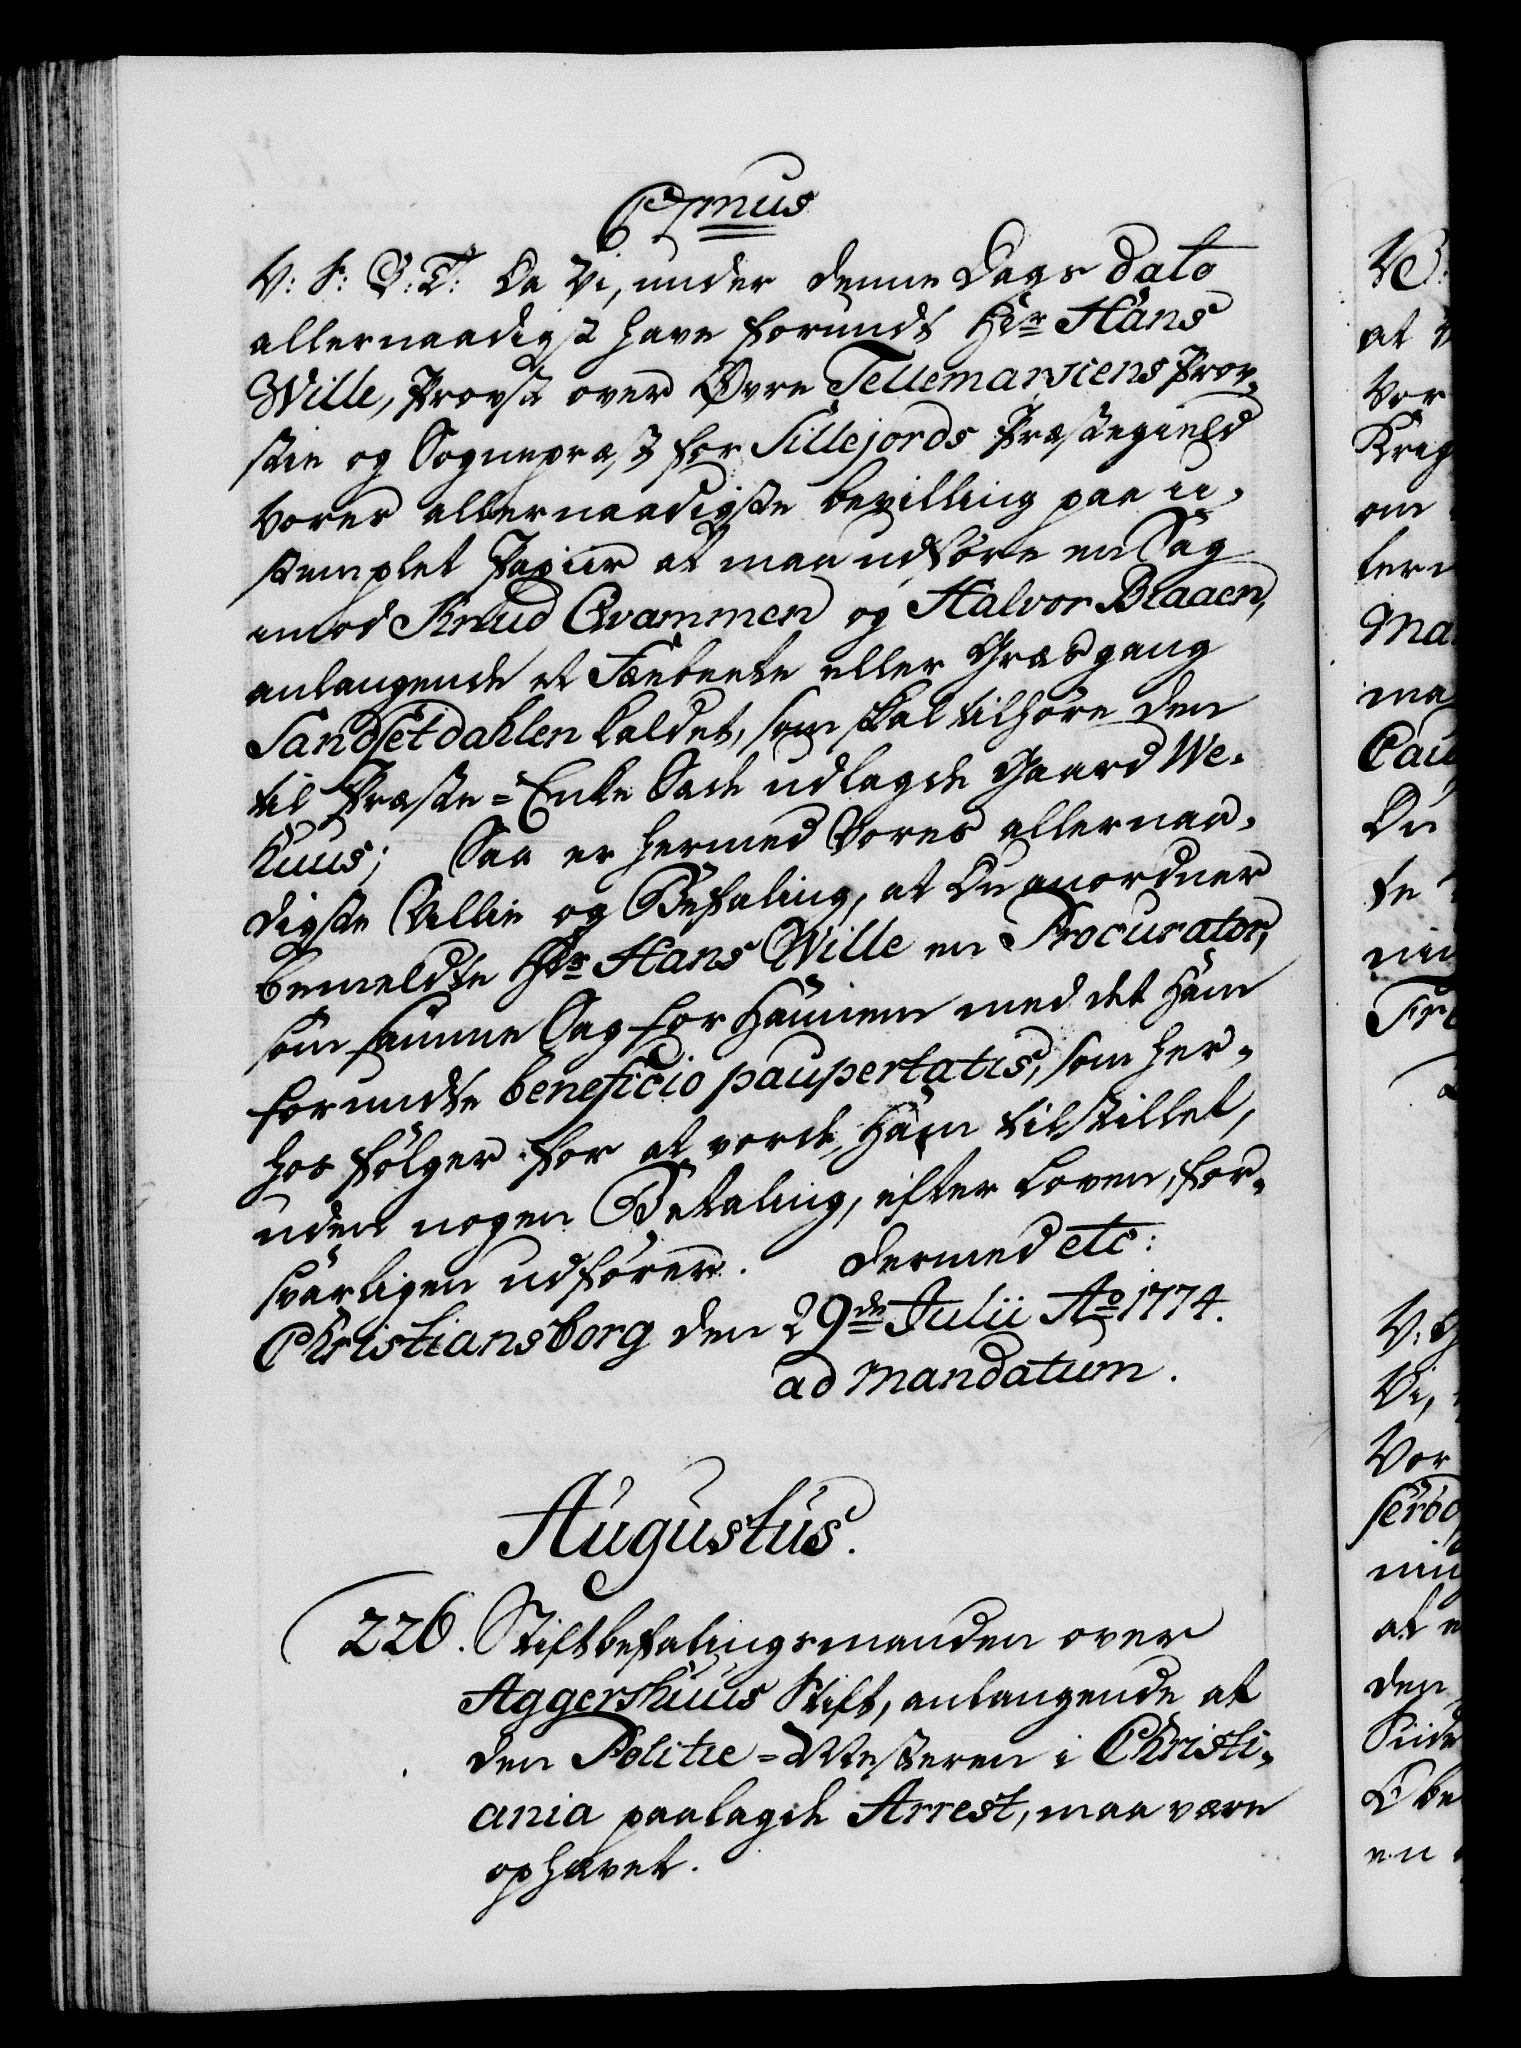 C7mus
V: S: G: T: Da Vi, under denne Dags dato
allernaadigst have forundt Hr Hans
Wille, Provst over Øvre Tellemarkens Prov-
stie og Sognepræst for Sillejords Præstegield
Vores allernaadigste bevilling paa u-
stemplet Papiir at maa udføre en Sag
imod Knud Qvammen og Halvor Blaaen,
anlangende et Fæebeete eller Græsgang
Sandsetdahlen kaldet, som skal tilhøre den
til Præste=Enke Sæde udlagde Gaard We-
huus; Saa er hermed Vores allernaa-
digste Villie og Befaling, at Du anordner
bemeldte Hr Hans Wille en Procurator,
som samme Sag for Hannem med det Ham
forundte beneficio paupertatis, som her-
hos følger for at vorde Ham tilstillet,
uden nogen Betaling, efter Loven, for-
svarligen udfører. Dermed etc:
Christiansborg den 29de Julii Ao 1774.
ad mandatum.
Augustus.
226. Stiftbefalingsmanden over
Aggershuus Stift, anlangende at
den Politie=Mesteren i Christi-
ania paalagde Arrest, maa være
ophævet.